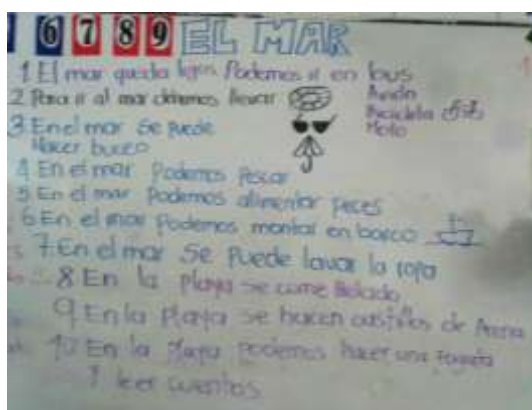 6 7 8 9 EL MAR
1 El mar queda lejos. Podemos ir en bus
Avión
2 Para ir al mar debemos llevar
Bicicleta
Moto
3 En el mar se puede
Hacer buceo
4 En el mar Podemos Pescar
5 En el mar Podemos alimentar peces
6 En el mar Podemos montar en barco
7 En el mar Se Puede lavar la ropa
8 En la playa se come Helado
9 En la Playa se hacen castillos de Arena
10 En la Playa Podemos hacer una fogata
Y leer cuentos